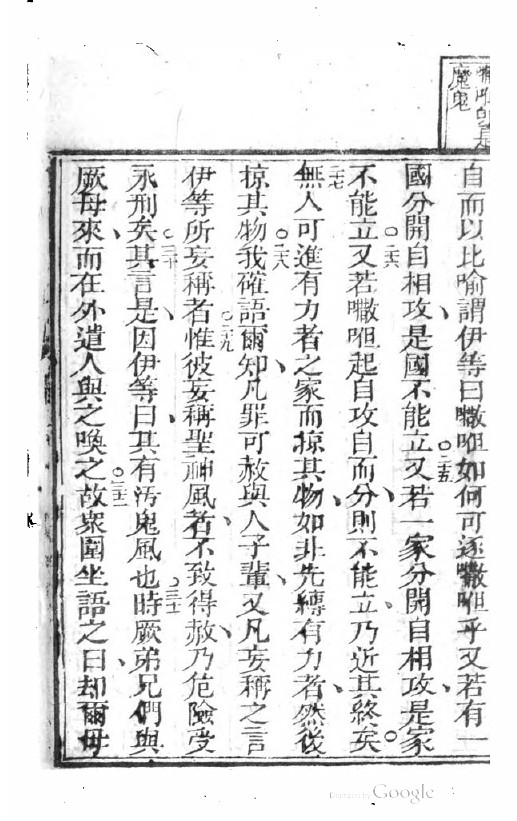 魔鬼
自而以比喻謂伊等曰㘔呾如何可逐㘔呾乎又若有一
國分開自相攻是國不能立又若一家分開自相攻是家
不能立又若㘔呾起自攻自而分則不能立乃近其終矣
無人可進有力者之家而掠其物如非先縛有力者然後
掠其物我確語爾知凡罪可赦與人子輩又凡妄稱之言
伊等所妄稱者惟彼妄稱聖神風者不致得赦乃危險受
永刑矣其言是因伊等曰其有汚鬼風也時厥弟兄們與
厥母來而在外遣人與之喚之故衆圍坐語之曰却爾母
Google